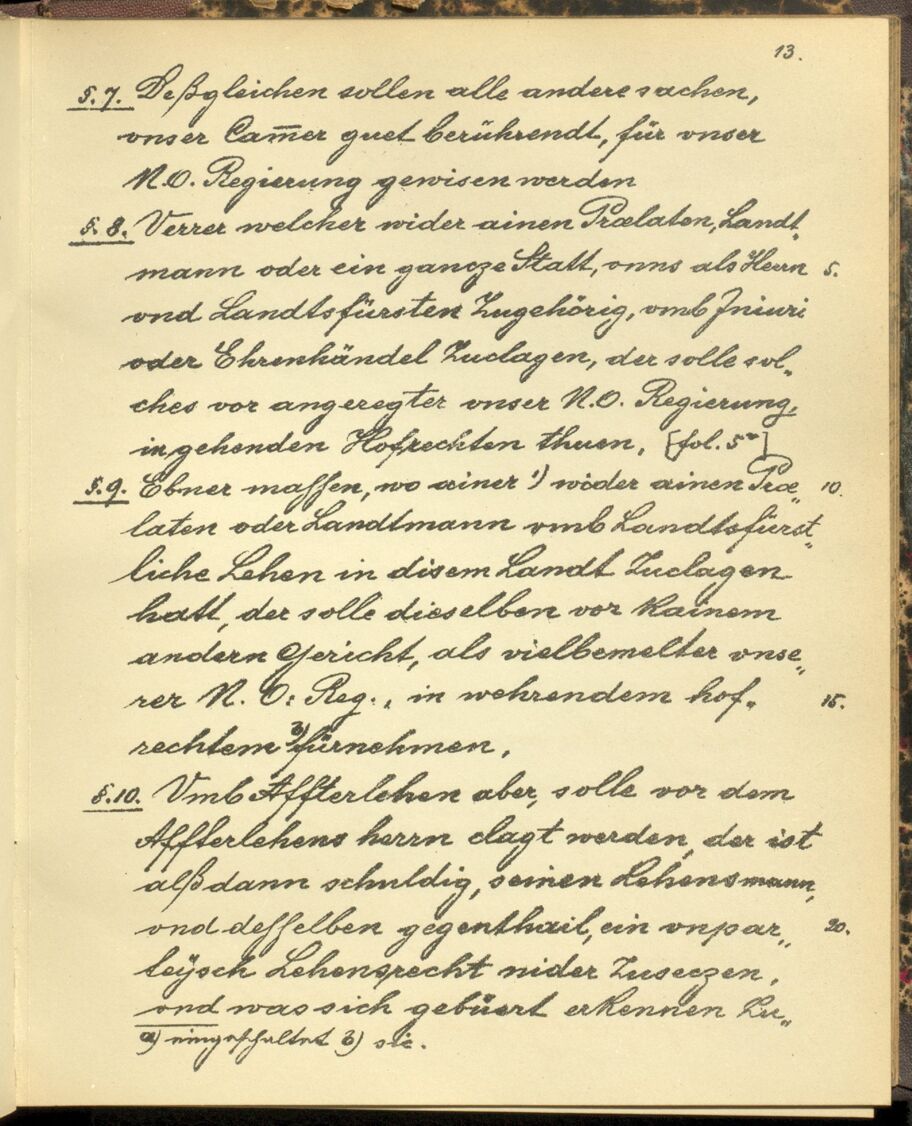 13.
§.7. Deßgleichen sollen alle andere sachen,
vnser Cam̅er guet berührendt, für vnser
N.Ö. Regierung gewisen werden
§.8. Verrer welcher wider ainen Prælaten, Landt„
mann oder ein gancze Statt, vnns als Herrn 5.
vnd Landtsfürsten Zugehörig, vmb Iniuri
oder Ehrenhändel Zuclagen, der solle sol„
ches vor angeregter vnser N.Ö. Regierung,
in gehenden Hofrechten thuen. [fol. 5ᵛ]
§.9. Ebner massen, wo ainer ¹) wider ainen Præ„ 10.
laten oder Landtmann vmb Landtsfürst„
liche Lehen in disem Landt Zuclagen
hatt, der solle dieselben vor Kainem
andern Gericht, als vielbemelter vnse„
rer N. Ö: Reg., in wehrendem hof„ 15.
rechtem ᵇ) fürnehmen.
§.10. Vmb Affterlehen aber, solle vor dem
Affterlehens herrn clagt werden, der ist
alßdann schuldig, seinen Lehensmann,
vnd desselben gegenthail, ein vnpar„ 20.
teÿsch Lehensrecht nider Zuseczen,
vnd was sich gebüert erkennen Zu„
a) eingeschaltet b) sic.